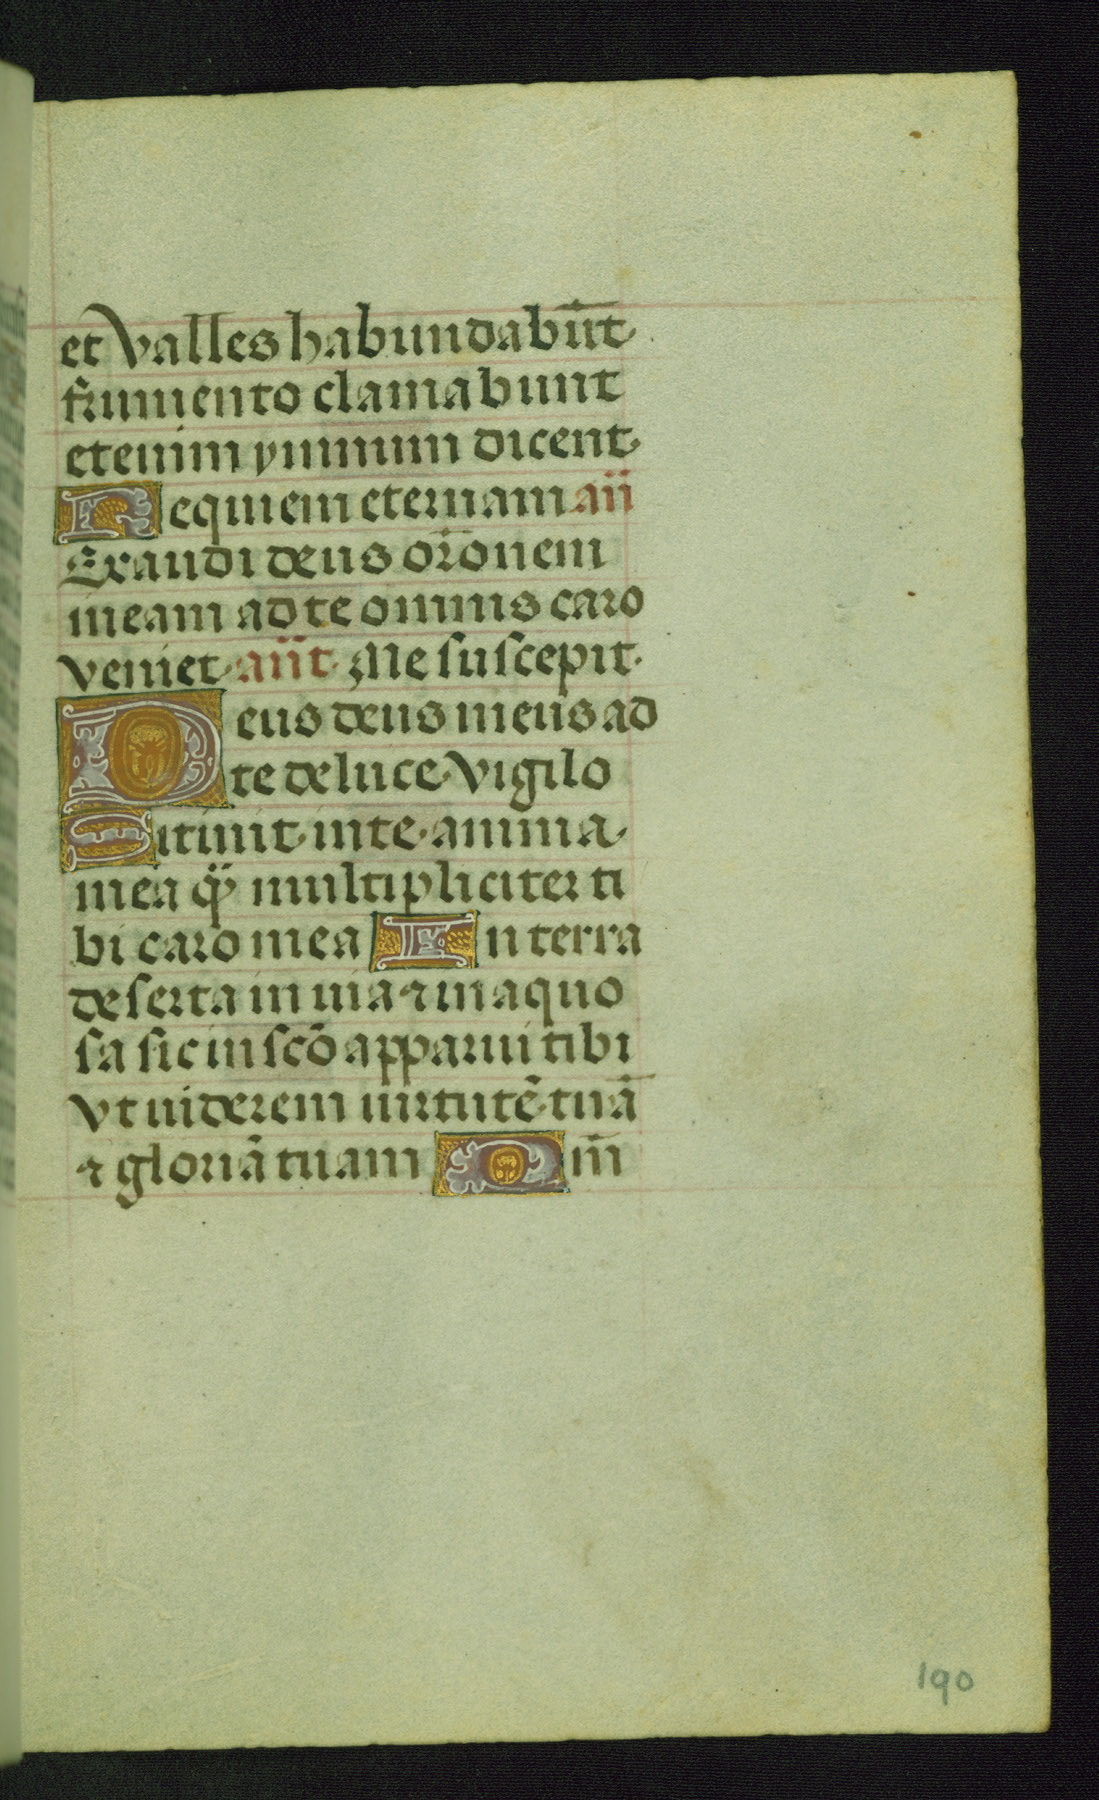 et valles habundabūt
frumento clamabunt
etenim ymnum dicent
Requiem eternam añ
Exaudi deus or̄onem
meam ad te omnis caro
veniet añt Me suscepit
Deus deus meus ad
te de luce vigilo
Sitiuit in te anima
mea q̄ multipliciter ti
bi caro mea In terra
deserta inuia ⁊ inaquo
sa sic in scō apparui tibi
vt uiderem uirtutē tuā
⁊ gloriā tuam Qm̄
190